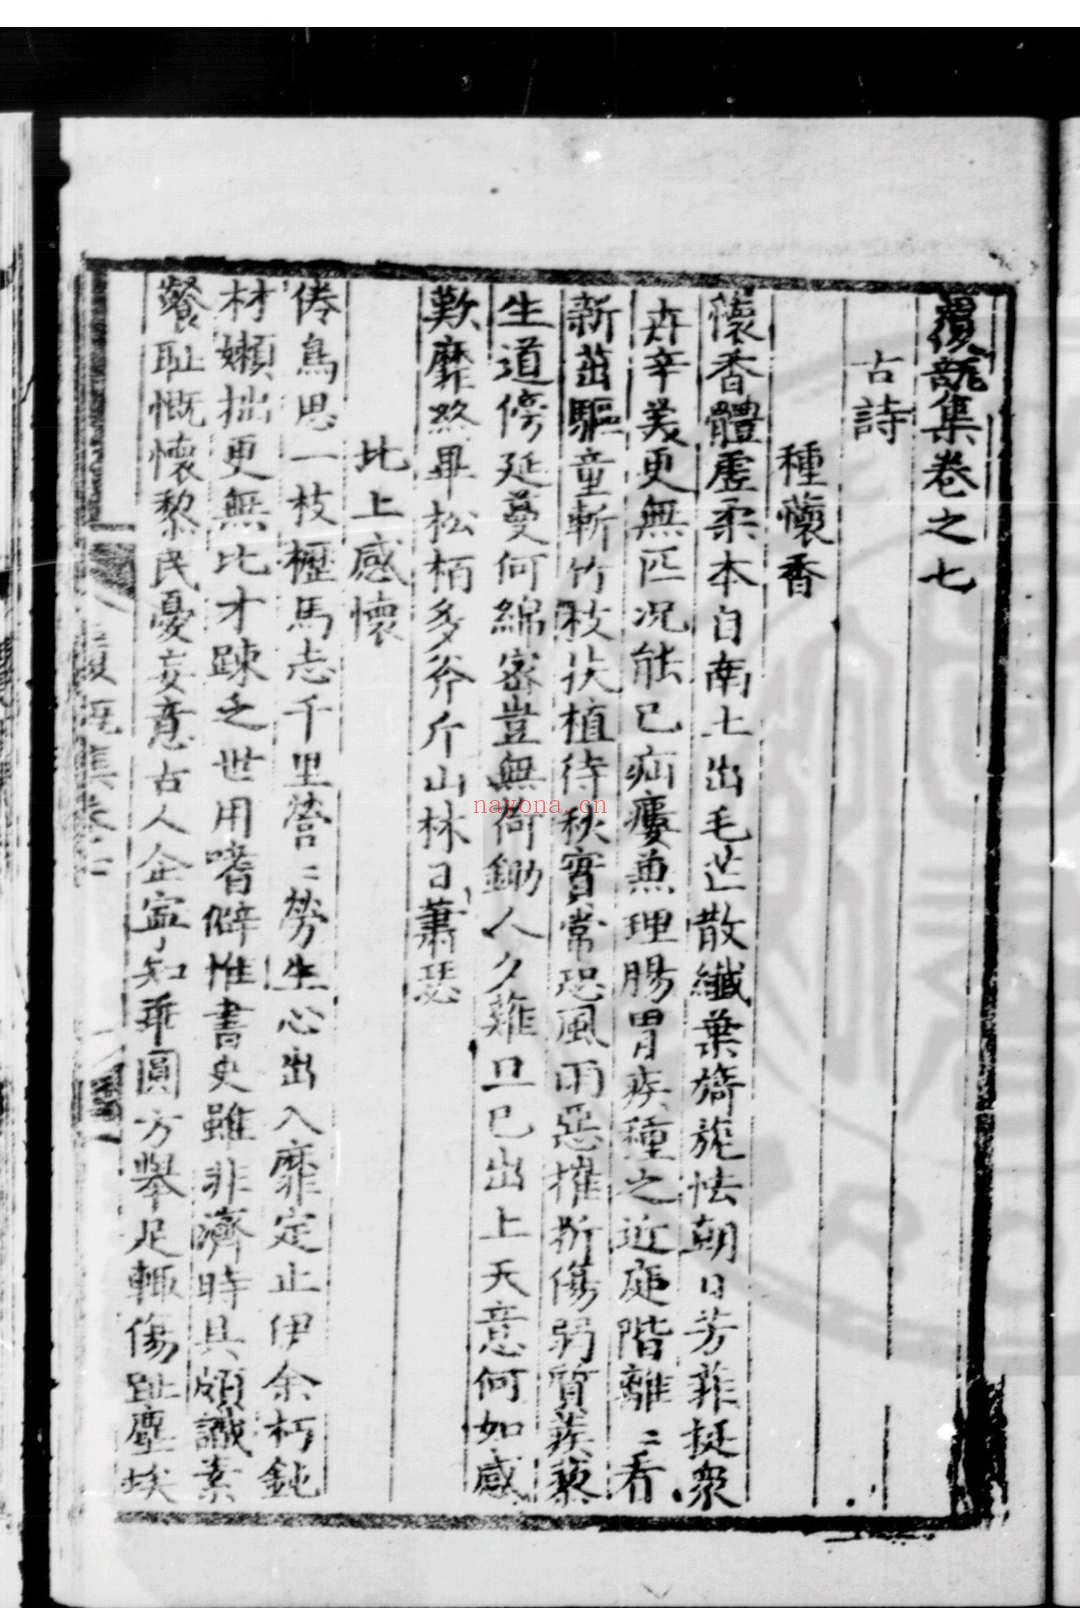 覆瓿集卷之七
古詩
種懷香
懷香體虛柔本自南土出毛芒散纖葉旖旎怯朝日芳菲挺衆
卉辛美更無匹况能已疝瘻兼理腸胃疾種之近庭階離〻看
新茁驅童斬竹枝扶植待秋實常恐風雨惡摧折傷弱質蒺藜
生道傍延蔓何綿密豈無荷鋤人夕薙旦已出上天意何如感
歎靡終畢松栢多斧斤山林日蕭瑟
比上感懷
倦鳥思一枝櫪馬志千里營〻勞生心出入靡定止伊余朽鈍
材嬾拙更無比才踈乏世用嗜僻惟書史雖非濟時具頗識素
餐耻慨懷黎民憂妄意古人企寧知乖圓方舉足輙傷趾塵埃
nayona.cn